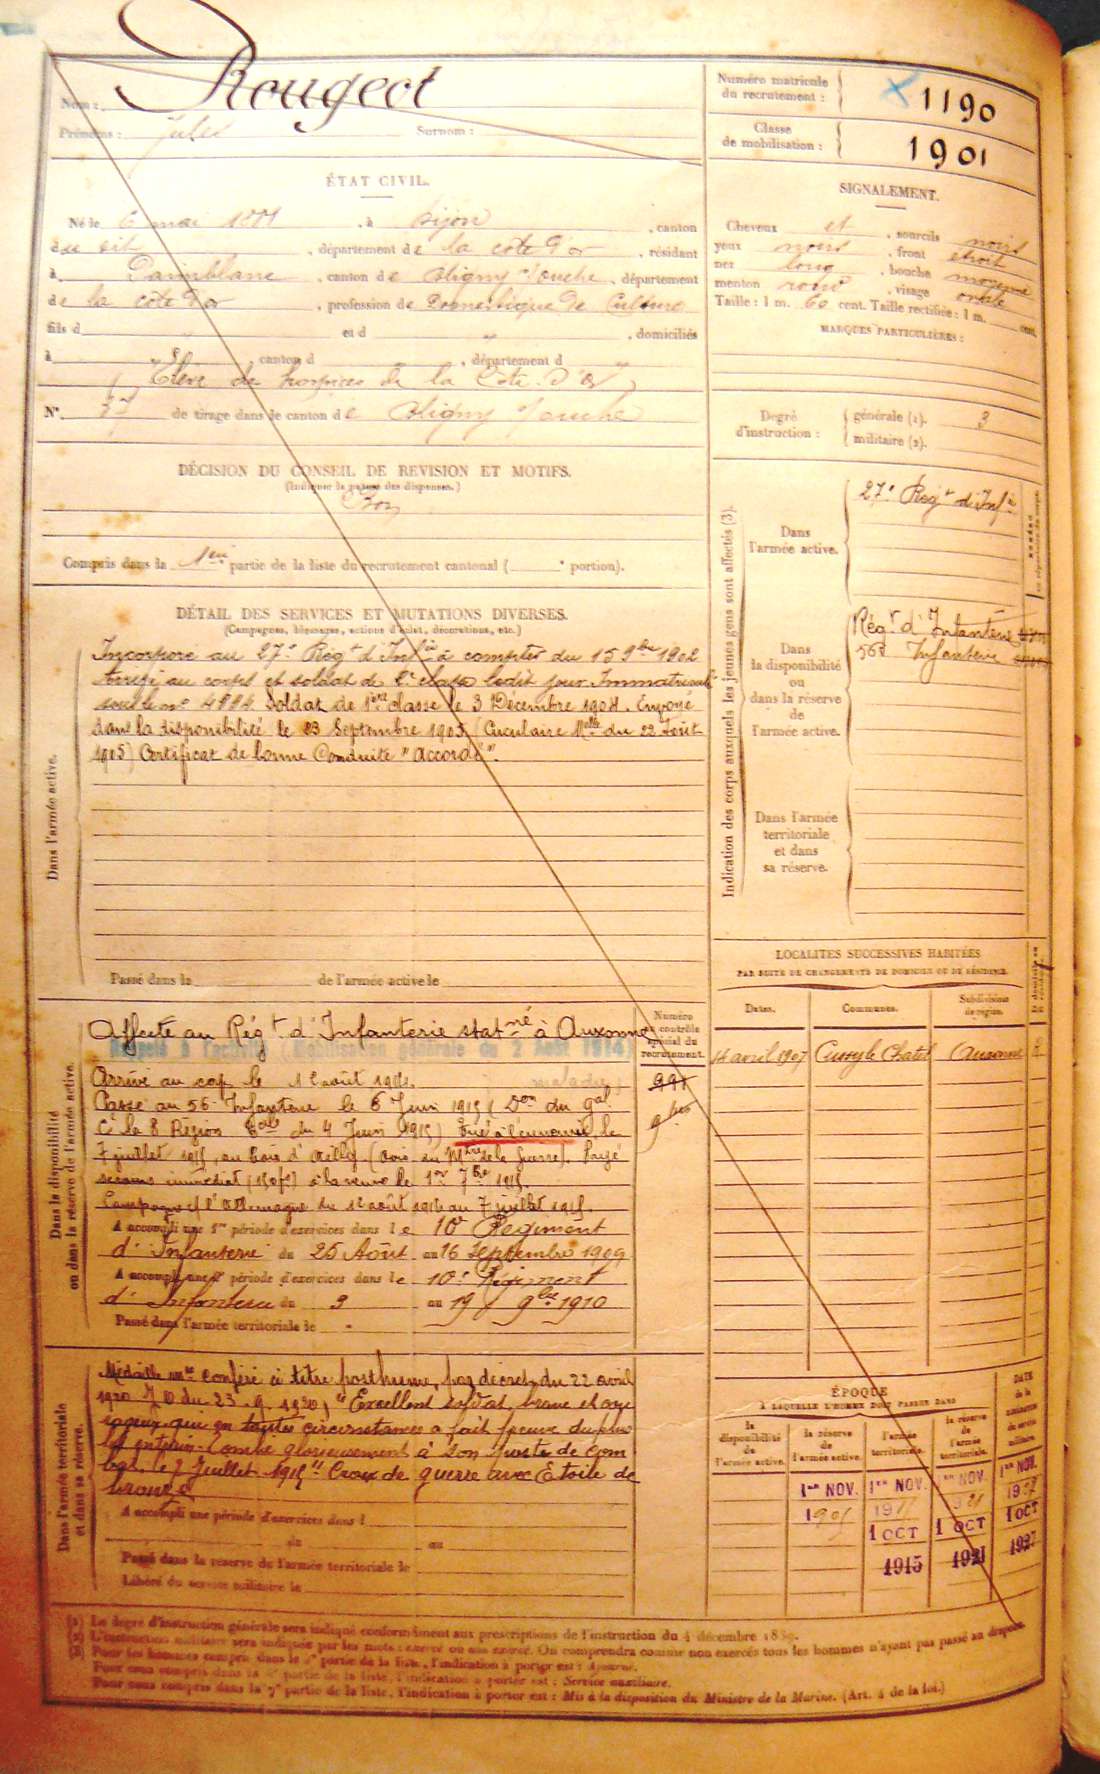 Nom : Rougeot
Prénoms : Jules Surnom :
Numéro matricule du recrutement : 1190
Classe de mobilisation : 1901
ÉTAT CIVIL.
Né le 6 mai 1881, à Dijon, canton
du dit, département de la Côte d'or, résidant
à Painblanc, canton de Bligny s/ouche, département
de la Côte d'or, profession de Domestique de Culture
fils d " et d ", domiciliés
à canton d ", département d "
( Elève des hospices de la Côte-d'Or )
N° 37 de tirage dans le canton de Bligny s/ouche
SIGNALEMENT.
Cheveux et, sourcils noirs
yeux noirs, front étroit
nez long, bouche moyenne
menton rond, visage ovale
Taille : 1 m. 60 cent. Taille rectifiée : 1 m. cent.
MARQUES PARTICULIÈRES :
Degré d'instruction : générale (1). 3
militaire (2).
DÉCISION DU CONSEIL DE REVISION ET MOTIFS.
(Indiquer la nature des dispenses.)
Bon
Compris dans la 1ère partie de la liste du recrutement cantonal ( e portion).
DÉTAIL DES SERVICES ET MUTATIONS DIVERSES.
(Campagnes, blessures, actions d'éclat, décorations, etc.)
Dans l'armée active.
Incorporé au 27e Régt d'Infie à compter du 15 9bre 1902
Arrivé au corps et soldat de 2e classe ledit jour. Immatriculé
sous le no 4894. Soldat de 1ère classe le 3 Décembre 1904. Envoyé
dans la disponibilité le 23 Septembre 1905 (Circulaire Mlle du 22 Août
1905) Certificat de bonne Conduite "Accordé".
Passé dans la de l'armée active le
Indication des corps auxquels les jeunes gens sont affectés (3).
Dans l'armée active.
27e Régt d'Infie
Dans la disponibilité ou dans la réserve de l'armée active.
Régt d'Infanterie
56e Infanterie
Dans l'armée territoriale et dans sa réserve.
LOCALITÉS SUCCESSIVES HABITÉES
PAR SUITE DE CHANGEMENTS DE DOMICILE OU DE RÉSIDENCE.
Dates. Communes. Subdivisions de région.
14 avril 1907 Cussy le Chatel Auxonne R
Dans la disponibilité ou dans la réserve de l'armée active.
Numéro au contrôle spécial du recrutement.
Affecté au Régt d'Infanterie statné à Auxonne
Rappelé à l'activité (Mobilisation générale du 2 Août 1914)
Arrivé au corps le 12 août 1914.
Passé au 56e Infanterie le 6 Juin 1915 (Don du gal
Ct la 8 Région du 4 Juin 1915) Tué à l'ennemi le
7 juillet 1915, au bois d'Ailly (avis du Mtre de la Guerre). Payé
secours immédiat (150f) à la veuve le 1er 7bre 1915.
Campagne c/ l'Allemagne du 12 août 1914 au 7 juillet 1915.
A accompli une 1re période d'exercices dans le 10e Régiment
d'Infanterie du 25 Août au 16 Septembre 1909
A accompli une 2e période d'exercices dans le 10e Régiment
d'Infanterie du 3 au 19 9bre 1910
Passé dans l'armée territoriale le
Dans l'armée territoriale et dans sa réserve.
Médaille mre conféré à titre posthume, par décret du 22 avril
1920 J O du 23. 9. 1920, "Excellent soldat, brave et cou
rageux qui en toutes circonstances a fait preuve du plus
bel entrain. Tombé glorieusement à son poste de com
bat, le 7 Juillet 1915" Croix de guerre avec Etoile de
bronze
A accompli une période d'exercices dans l
du au
Passé dans la réserve de l'armée territoriale le
Libéré du service militaire le
ÉPOQUE
À LAQUELLE L'HOMME DOIT PASSER DANS
la disponibilité de l'armée active. la réserve de l'armée active. l'armée territoriale. la réserve de l'armée territoriale. DATE de la libération du service militaire.
1er NOV. 1er NOV. 1er NOV. 1er NOV.
1905
1 OCT 1 OCT 1 OCT
1915 1921 1927
(1) Le degré d'instruction générale sera indiqué conformément aux prescriptions de l'instruction du 4 décembre 1889.
(2) L'instruction militaire sera indiquée par les mots : exercé ou non exercé. On comprendra comme non exercés tous les hommes n'ayant pas passé au drapeau.
(3) Pour les hommes compris dans le 4e partie de la liste, l'indication à porter est : Ajourné.
Pour ceux compris dans la 5e partie de la liste, l'indication à porter est : Service auxiliaire.
Pour ceux compris dans la 7e partie de la liste, l'indication à porter est : Mis à la disposition du Ministre de la Marine. (Art. 4 de la loi.)